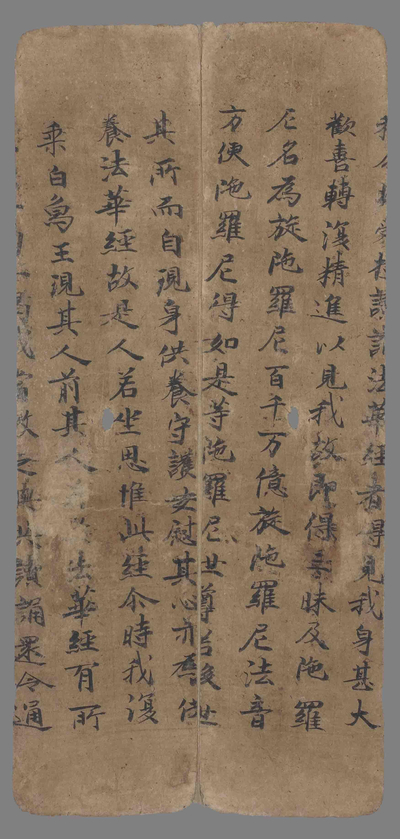 讀誦法華經者得見我身甚大
歡喜轉復精進以見我故即得三昧及陀羅
尼名為旋陀羅尼百千万億旋陀羅尼法音
方便陀羅尼得如是等陀羅尼世尊若後世
其所而自現身供養守護安慰其心亦為供
養法華經故是人若坐思惟此經尒時我復
乘白象王現其人前其人若於法華經有所
句一偈我當教之與共讀誦還令通